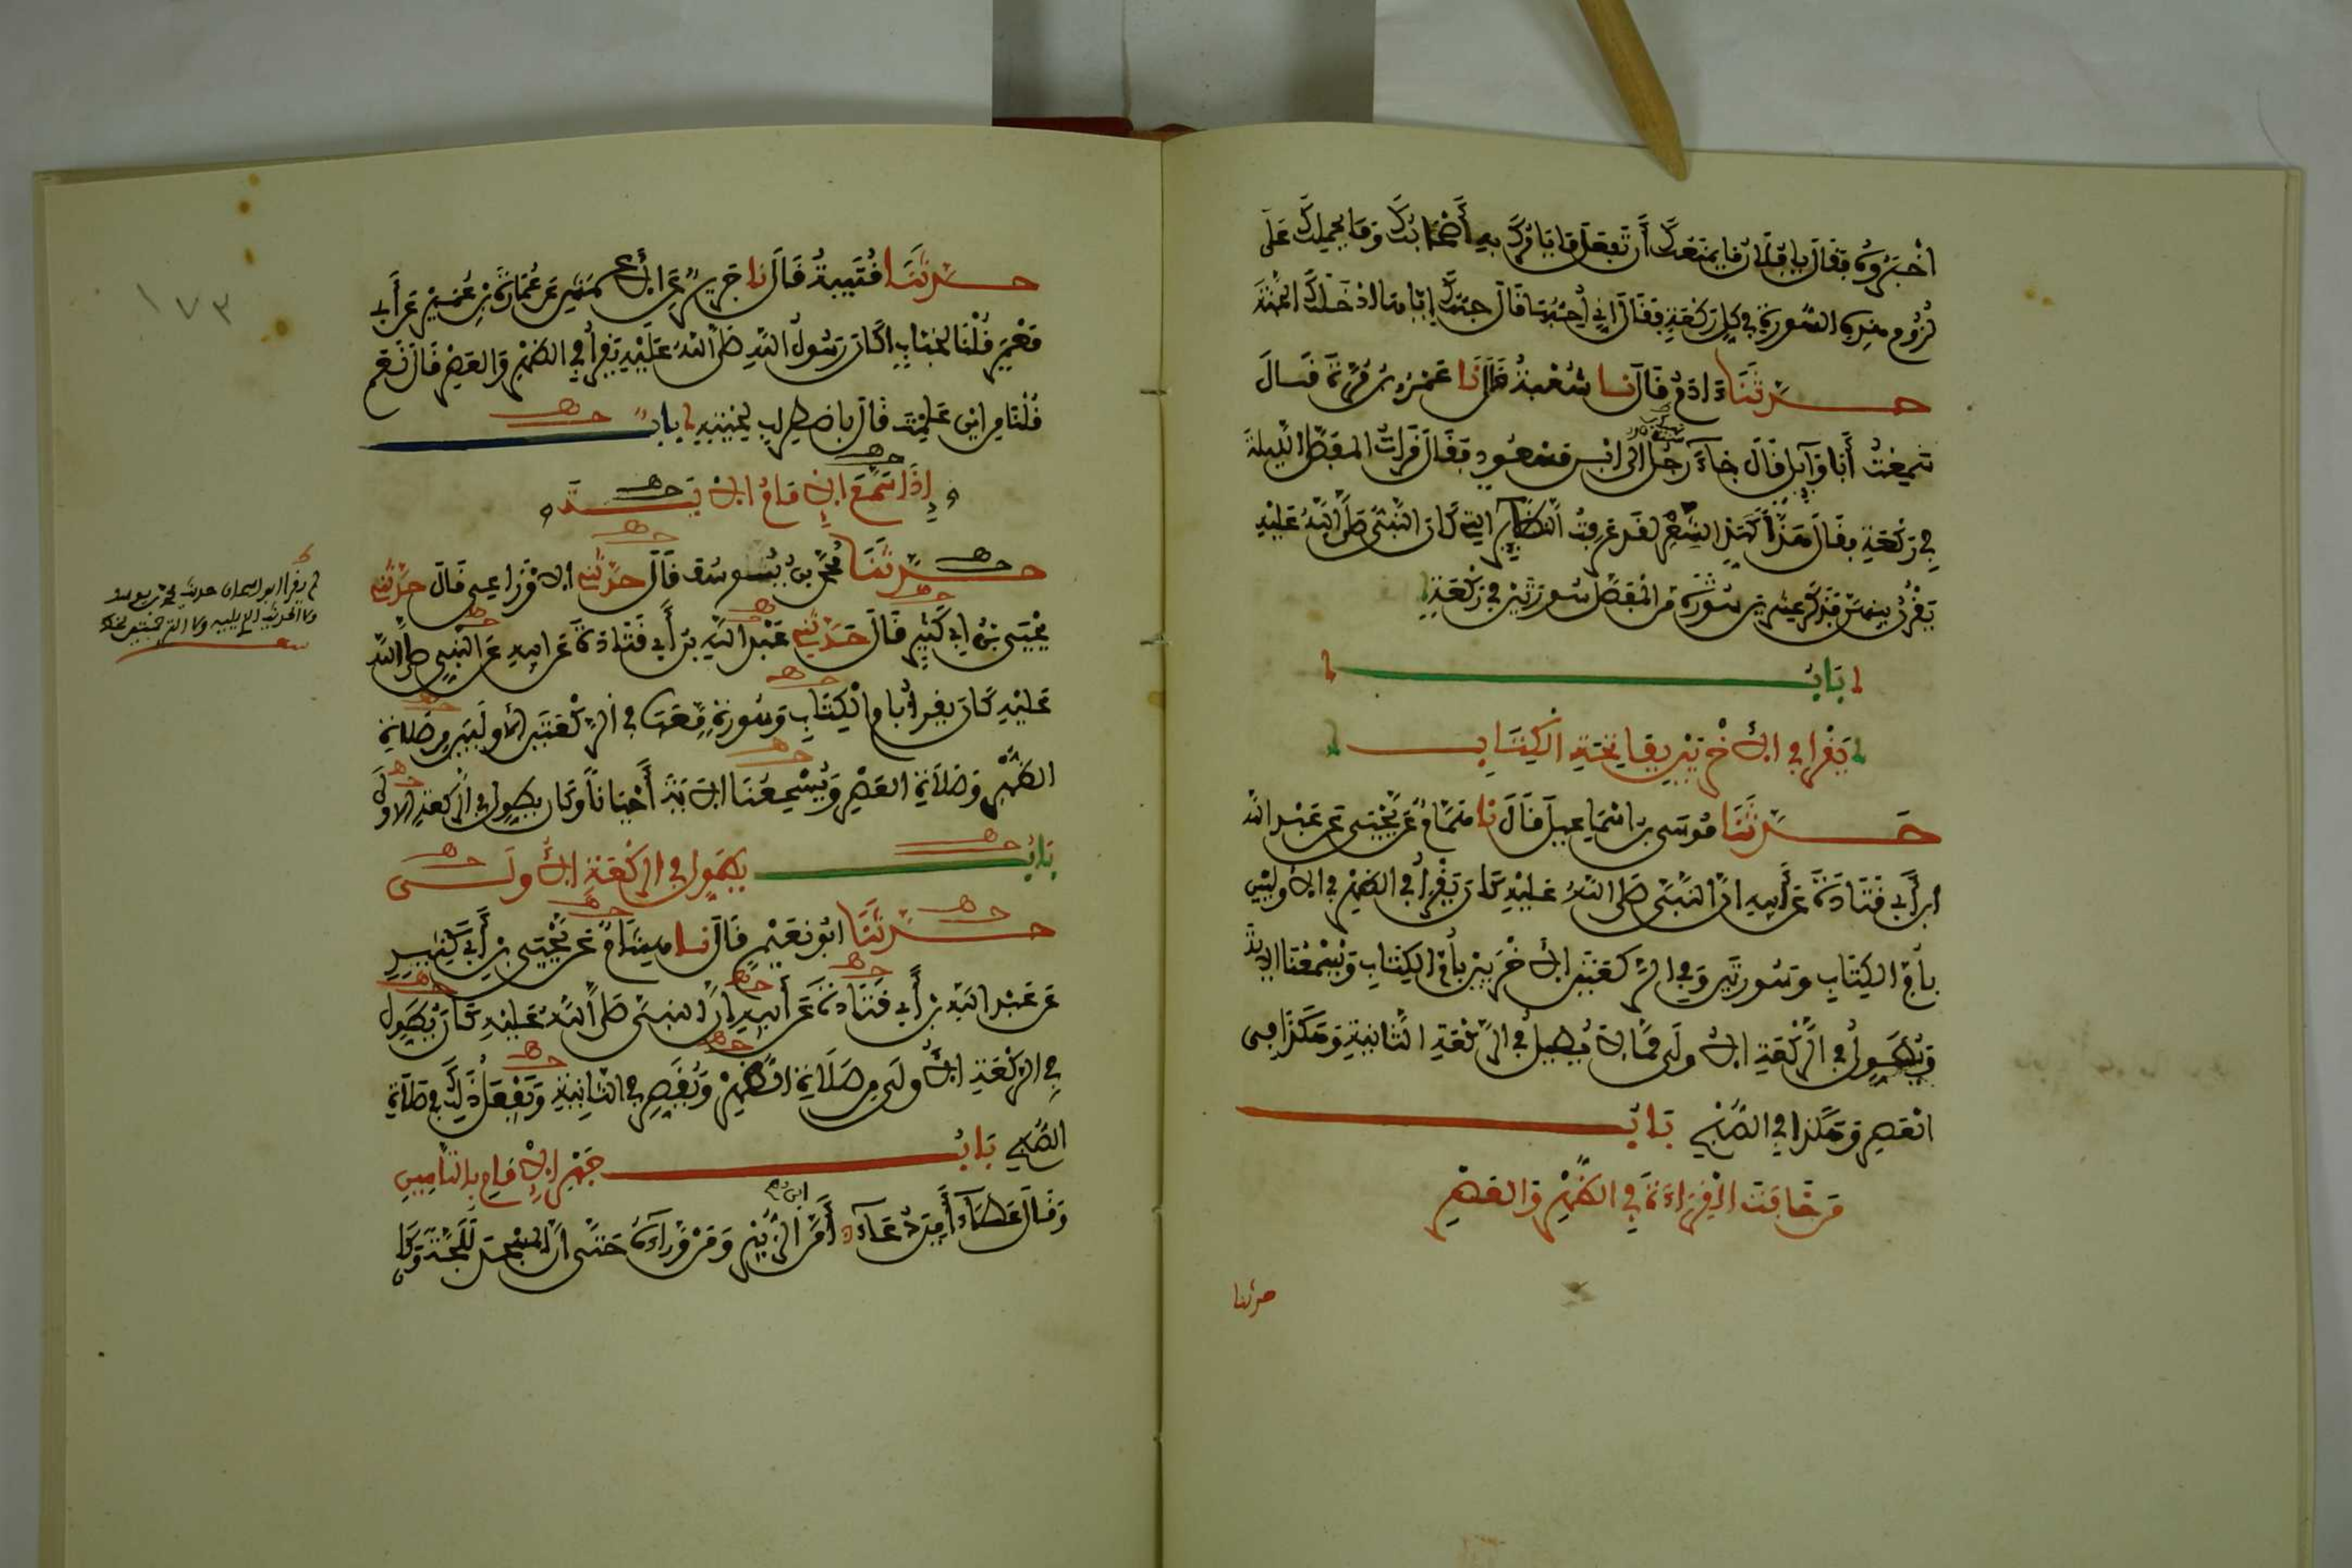 اخْبَرُوهُ فَقَالَ يَا فُلَانُ مَا يَمْنَعُكَ أَنْ تَفْعَلَ مَا يَامُرُكَ بِهِ أَصْحَابُكَ وَمَا يَحْمِلُكَ عَلَى
لُزُومِ هَذِهِ السُّورَةِ فِي كُلِّ رَكْعَةٍ فَقَالَ إِنِّي أُحِبُّهَا قَالَ حُبُّكَ إِيَّاهَا ادْخَلَكَ الْجَنَّةَ
حَدَّثَنَا ءَادَمُ قَالَ نا شُعْبَةُ قَالَ نَا عَمْرُو بْنُ مُرَّةَ قَالَ
سَمِعْتُ أَبَا وَآئِلٍ قَالَ جَاءَ رَجُلٌ الَى ابْنِ مَسْعُودٍ فَقَالَ قَرَأْتُ الْمُفَصَّلَ اللَّيْلَةَ
فِي رَكْعَةٍ فَقَالَ هَذًّا كَهَذِّ الشِّعْرِ لَقَدْ عَرَفْتُ النَّظَآئِرَ التِي كَانَ النَّبِيُّ صَلَّى اللَّهُ عَلَيْهِ
يَقْرُنُ بَيْنَهُنَّ فَذَكَرَ عِشْرِينَ سُورَةً مِنَ الْمُفَصَّلِ سُورَتَيْنِ فِي رَكْعَةٍ
بَابٌ
يَقْرَأُ فِي الْأُخْرَيَيْنِ بِفَاتِحَةِ الْكِتَابِ
حَدَّثَنَا مُوسَى بْنُ اسْمَاعِيلَ قَالَ نا هَمَّامٌ عَنْ يَحْيَى عَنْ عَبْدِ اللَّهِ
ابْنِ أَبِي قَتَادَةَ عَنْ أَبِيهِ انَّ النَّبِيَّ صَلَّى اللَّهُ عَلَيْهِ كَانَ يَقْرَأُ فِي الظُّهْرِ فِي الْأُولَيَيْنِ
بِأُمِّ الْكِتَابِ وَسُورَتَيْنِ وَفِي الرَّكْعَتَيْنِ الْأُخْرَيَيْنِ بِأُمِّ الْكِتَابِ وَيُسْمِعُنَا الايَةَ
وَيُطَوِّلُ فِي الرَّكْعَةِ الْأُولَى مَا لَا يُطِيلُ فِي الرَّكْعَةِ الثَّانِيَةِ وَهَكَذَا فِى
الْعَصْرِ وَهَكَذَا فِي الصُّبْحِ بَابُ
مَنْ خَافَتَ الْقِرَاءَةَ فِي الظُّهْرِ وَالْعَصْرِ
حدثنا
حَدَّثَنَا قُتَيْبَةُ قَالَ نا جَرِيرٌ عَنِ الْأَعْمَشِ عَنْ عُمَارَةَ بْنِ عُمَيْرٍ عَنْ أَبِي
مَعْمَرٍ قُلْنَا لِخَبَّابٍ اكَانَ رَسُولُ اللَّهِ صَلَّى اللَّهُ عَلَيْهِ يَقْرَأُ فِي الظُّهْرِ وَالْعَصْرِ قَالَ نَعَمْ
قُلْنَا مِنَ ايْنَ عَلِمْتَ قَالَ بِاضْطِرَابِ لِحْيَتِهِ بَابٌ
إِذَا سَمَّعَ الْإِمَامُ الْأيَةَ
١٧٣
حَدَّثَنَا مُحَمَّدُ بْنُ يُوسُفَ قَالَ حَدَّثَنِي الْأَوْزَاعِي قَالَ حَدَّثَنِي
يَحْيَى بْنُ ابِي كَثِيرٍ قَالَ حَدَّثَنِي عَبْدُ اللَّهِ بْنُ أَبِي قَتَادَةَ عَنَ ابِيهِ عَنِ النَّبِيِّ صَلَّى اللَّهُ
عَلَيْهِ كَانَ يَقْرَأُ بِأُمِّ الْكِتَابِ وَسُورَةٍ مَّعَهَا فِي الرَّكْعَتَيْنِ الْأُولَيَيْنِ مِنْ صَلَاةِ
الظُّهْرِ وَصَلَاةِ الْعَصْرِ وَيُسْمِعُنَا الْأيَةَ أَحْيَانًا وَكَانَ يُطَوِّلُ فِي الرَّكْعَةِ الاولَى
بَابٌ يُطَوِّلُ فِي الرَّكْعَةِ الْأُولَى
حَدَّثَنَا ابُو نُعَيْمٍ قَالَ نا هِشَامٌ عَنْ يَحْيَى بْنِ أَبِي كَثِيرٍ
عَنْ عَبْدِ اللَّهِ بْنِ أَبِي قَتَادَةَ عَنَ أَبِيهِ انَّ النَّبِيَّ صَلَّى اللَّهُ عَلَيْهِ كَانَ يُطَوِّلُ
فِي الرَّكْعَةِ الْأُولَى مِنْ صَلَاةِ الظُّهْرِ وَيُقَصِّرُ فِي الثَّانِيَةِ وَيَفْعَلُ ذَلِكَ فِي صَلَاةِ
الصُّبْحِ بَابُ جَهْرِ الْإِمَامِ بِالتَّامِينِ
وَقَالَ عَطَاءٌ آمِينَ دُعَآءٌ أَمَّنَ ابْنُ الزُّبَيْرِ وَمَنْ وَرَآءَهُ حَتَّى انَّ لِلْمَسْجِدِ لَلَجَّةً وَكَانَ